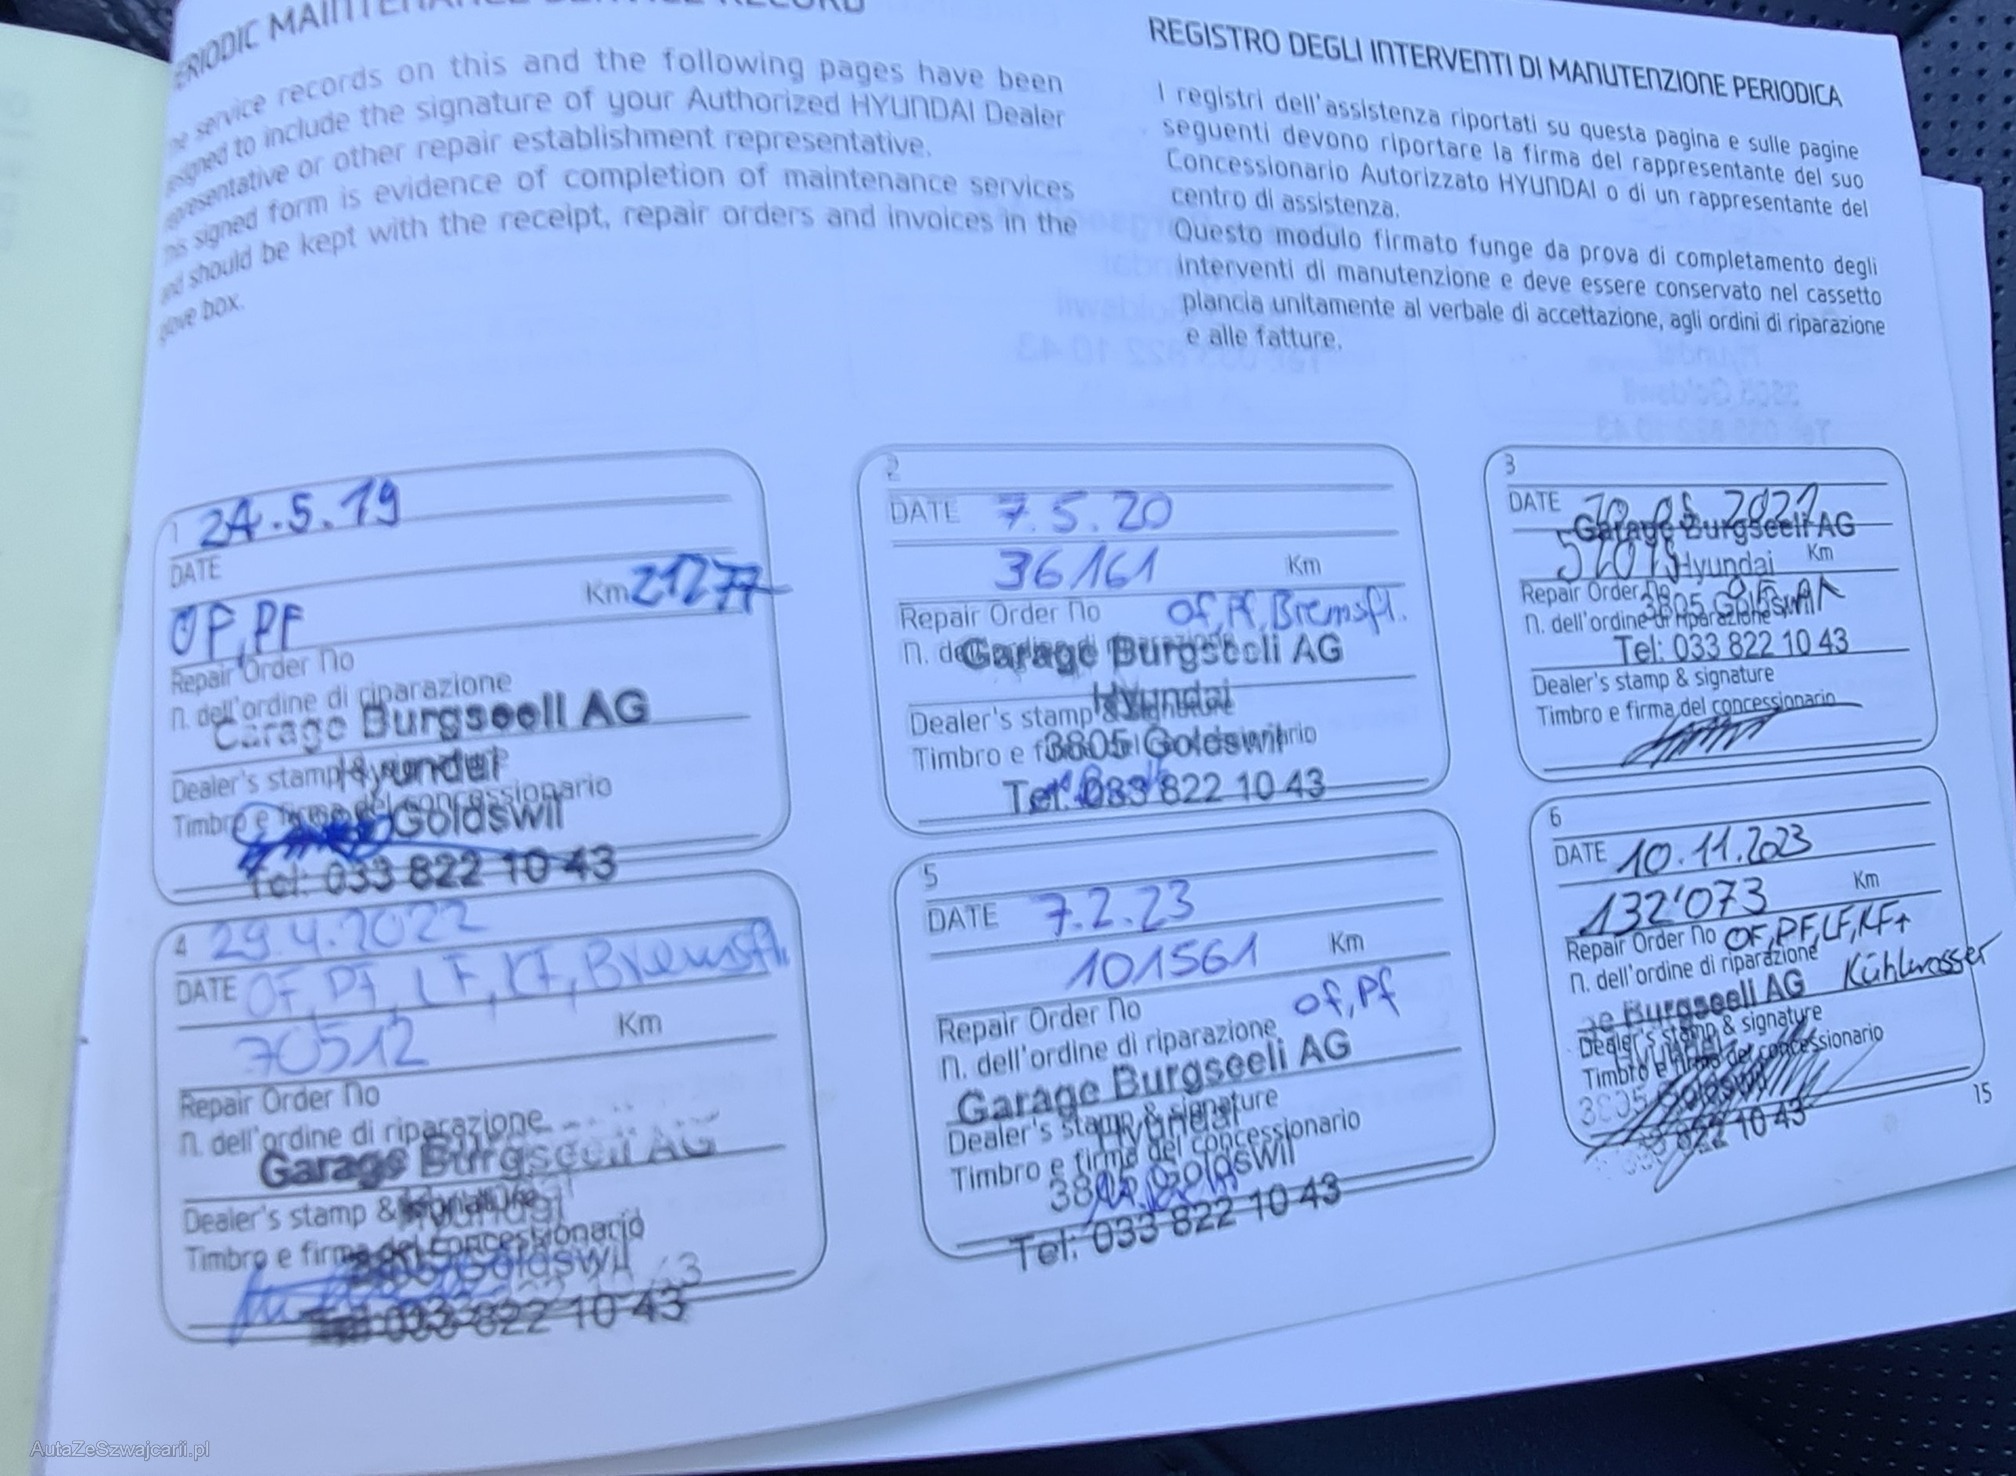 PERIODIC MAINTENANCE SERVICE RECORD
The service records on this and the following pages have been
designed to include the signature of your Authorized HYUNDAI Dealer
representative or other repair establishment representative.
This signed form is evidence of completion of maintenance services
and should be kept with the receipt, repair orders and invoices in the
glove box.
REGISTRO DEGLI INTERVENTI DI MANUTENZIONE PERIODICA
I registri dell'assistenza riportati su questa pagina e sulle pagine
seguenti devono riportare la firma del rappresentante del suo
Concessionario Autorizzato HYUNDAI o di un rappresentante del
centro di assistenza.
Questo modulo firmato funge da prova di completamento degli
interventi di manutenzione e deve essere conservato nel cassetto
plancia unitamente al verbale di accettazione, agli ordini di riparazione
e alle fatture.
1 24.5.19
DATE
Km 21277
OF, PF
Repair Order No
n. dell'ordine di riparazione
Garage Burgseeli AG
Dealer's stamp & Hyundai
Timbro e firma del concessionario
Goldswil
Tel: 033 822 10 43
2
DATE 7.5.20
36161 Km
Repair Order No Of, Pf, Bremsfl.
n. dell'ordine di riparazione
Garage Burgseeli AG
Hyundai
Dealer's stamp & signature
3805 Goldswil
Timbro e firma del concessionario
Tel: 033 822 10 43
3
DATE 2021
Garage Burgseeli AG
Hyundai Km
Repair Order No
3805 Goldswil
n. dell'ordine di riparazione
Tel: 033 822 10 43
Dealer's stamp & signature
Timbro e firma del concessionario
4 29.4.2022
DATE OF, Pf, LF, KF, Bremsfl.
70512 Km
Repair Order No
n. dell'ordine di riparazione
Garage Burgseeli AG
Dealer's stamp & signature
Hyundai
Timbro e firma del concessionario
3805 Goldswil
Tel: 033 822 10 43
5
DATE 7.2.23
101561 Km
Repair Order No Of, Pf
n. dell'ordine di riparazione
Garage Burgseeli AG
Dealer's stamp & signature
Hyundai
Timbro e firma del concessionario
3805 Goldswil
Tel: 033 822 10 43
6
DATE 10.11.2023
132'073 Km
Repair Order No OF, PF, LF, KF+
n. dell'ordine di riparazione Kühlwasser
ge Burgseeli AG
Dealer's stamp & signature
Timbro e firma del concessionario
3805 Goldswil
033 822 10 43
15
AutaZeSzwajcarii.pl